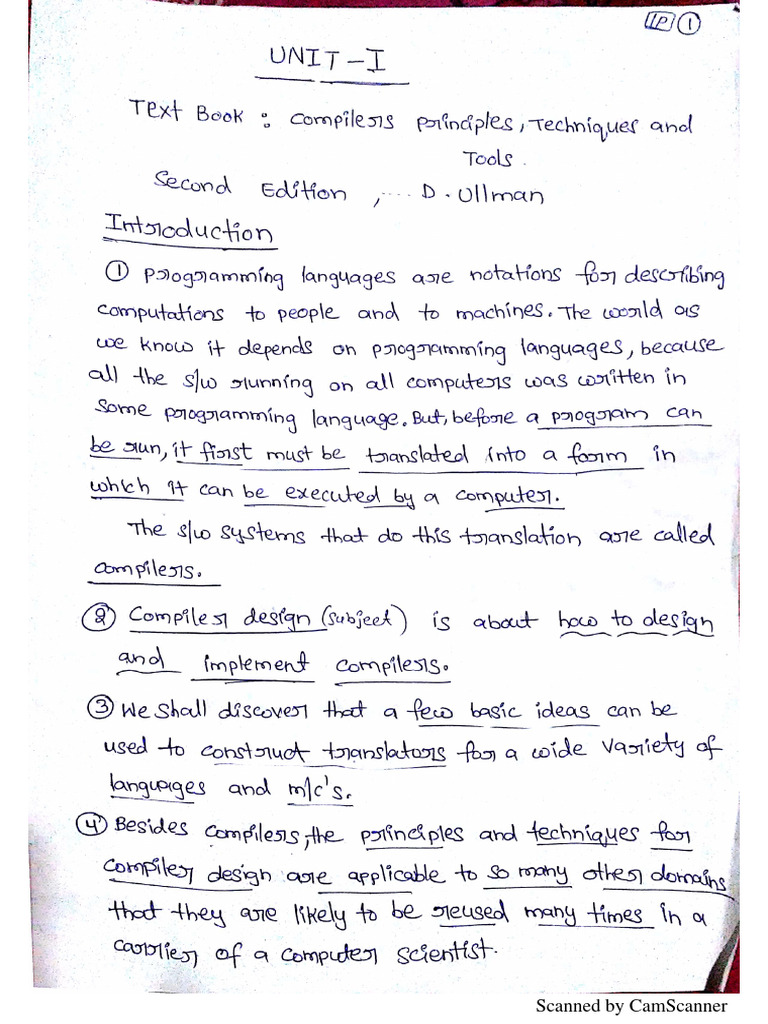 1P 1
UNIT-I
Text Book : Compilers Principles, Techniques and
Tools.
Second Edition , .... D. Ullman
Introduction
1 Programming languages are notations for describing
computations to people and to machines. The world as
we know it depends on programming languages, because
all the s/w running on all computers was written in
some programming language. But, before a program can
be run, it first must be translated into a form in
which it can be executed by a computer.
The s/w systems that do this translation are called
compilers.
2 Compiler design (subject) is about how to design
and implement compilers.
3 We shall discover that a few basic ideas can be
used to construct translators for a wide variety of
languages and m/c's.
4 Besides compilers, the principles and techniques for
compiler design are applicable to so many other domains
that they are likely to be reused many times in a
carrier of a computer scientist.
Scanned by CamScanner